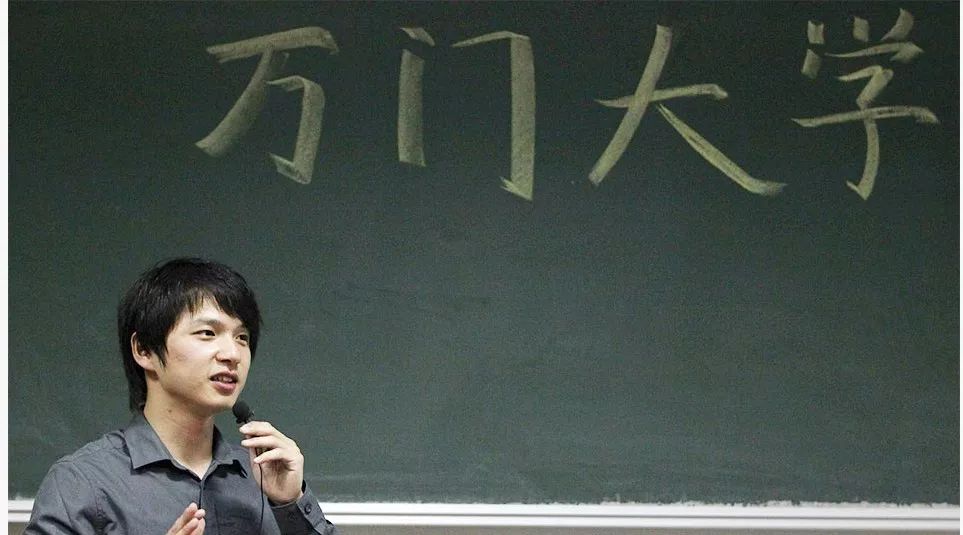 万门大学